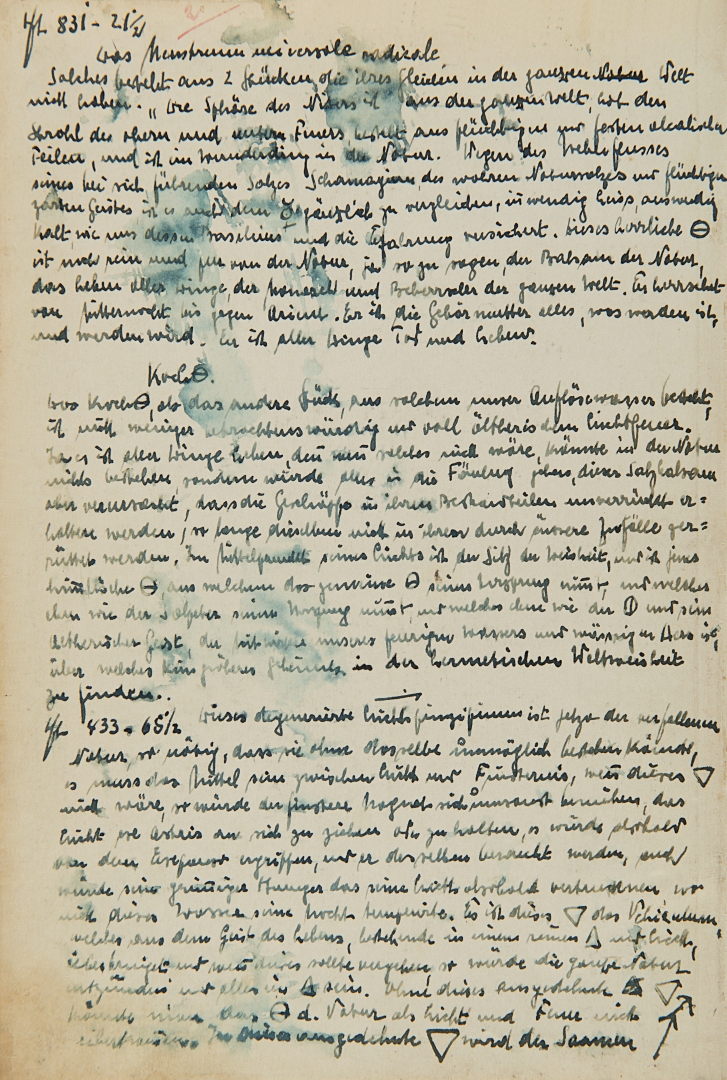 831 - 21½
Das Menstruum universale radicale
Solches besteht aus 2 Stücken, die ihres Gleichen in der ganzen Natur Welt
nicht haben. „ Die Sphäre des Niters ist aus der ganzen Welt, hat den
Strohl des obern und untern Feuers, besteht aus flüchtigen und festen alcalischen
Teilen, und ist ein Wunderding in der Natur. Wegen des
seines bei sich führenden Salzes des wahren Natursalzes und flüchtigen
zarten Geistes ist es auch dem ☿ gänzlich zu vergleichen, inwendig heiss, auswendig
kalt, wie uns dessen Basilius und die Erfahrung versichert. Dieses herrliche ⊖
ist noch rein und pur von der Natur, ja so zu sagen, der Balsam der Natur,
das Leben aller Dinge, der Monarch und Beherrscher der ganzen Welt. Er herrschet
von Mitternacht bis gegen Orient. Er ist die Gebärmutter alles, was worden ist,
und werden wird. Er ist aller Dinge Tod und Leben.
Koch⊖.
Das Koch⊖, als das andere Stück, aus welchem unser Auflösewasser besteht,
ist nicht weniger betrachtenswürdig und voll ätherischem Lichtfeuer.
Ja es ist aller Dinge Leben, denn wenn solches nicht wäre, könnte in der Natur
nichts bestehen, sondern würde alles in die Fäulung gehen, dieser Salzbalsam
aber verursachet, dass die Geschöpfe in ihren Bestandteilen unverrückt er=
halten werden, so lange dieselben nicht in ihrem durch äussere Zufälle zer=
rüttet werden. Im Mittelpunkt seines Lichts ist der Sitz der Weisheit, und ist jenes
⊖, aus welchem das gemeine ⊖ seinen Ursprung nimt, und welches
eben wie der Salpeter seine Nahrung nimt, und welches eben wie der ☽ und sein
ätherischer Geist, die unseres feurigen Wassers und wässrigen ist,
über welches kein grösseres Geheimnis in der hermetischen Weltweisheit
zu finden..
833 - 65½ Dieses degenerirte Lichtsprinzipium ist jetzo der verfallenen
Natur, so nötig, dass sie ohne dasselbe unmöglich bestehen könnte,
es muss das Mittel sein zwischen Licht und Finsternis, wenn dieses ▽
nicht wäre, so würde der finstere Magnet sich umsonst bemühen, das
Licht an sich zu ziehen oder zu halten, es würde alsbald
von dem ergriffen, und er desselben beraubt werden, auch
würde sein grimmiger Hunger das seine Licht alsobald vertrucknen wo
nicht dieses Wasser seine Macht temperirte. Es ist dieses ▽ das Vehiculum,
welches aus dem Geist des Lebens, bestehende in einem reinen △ und Licht,
und wenn dieses sollte vergehen, so würde die ganze Natur
entzündet und alles in △ sein. Ohne dieses ausgedehnte ▽
könnte man das ⊖ d. Natur als Licht und Feuer nicht
In dieses ausgedehnte ▽ wird der Saamen